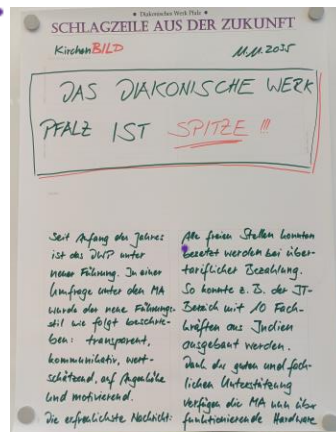 • Diakonisches Werk Pfalz •
SCHLAGZEILE AUS DER ZUKUNFT
KirchenBILD
11.11.2035
DAS DIAKONISCHE WERK
PFALZ IST SPITZE !!!
Seit Anfang des Jahres
ist das DWP unter
neuer Führung. In einer
Umfrage unter den MA
wurde der neue Führungs-
stil wie folgt beschrie-
ben: transparent,
kommunikativ, wert-
schätzend, auf Augenhöhe
und motivierend.
Die erfreulichste Nachricht:
Alle freien Stellen konnten
besetzt werden bei über-
tariflicher Bezahlung.
So konnte z. B. der IT-
Bereich mit 10 Fach-
kräften aus Indien
ausgebaut werden.
Dank der guten und fach-
lichen Unterstützung
verfügen die MA nun über
funktionierende Hardware